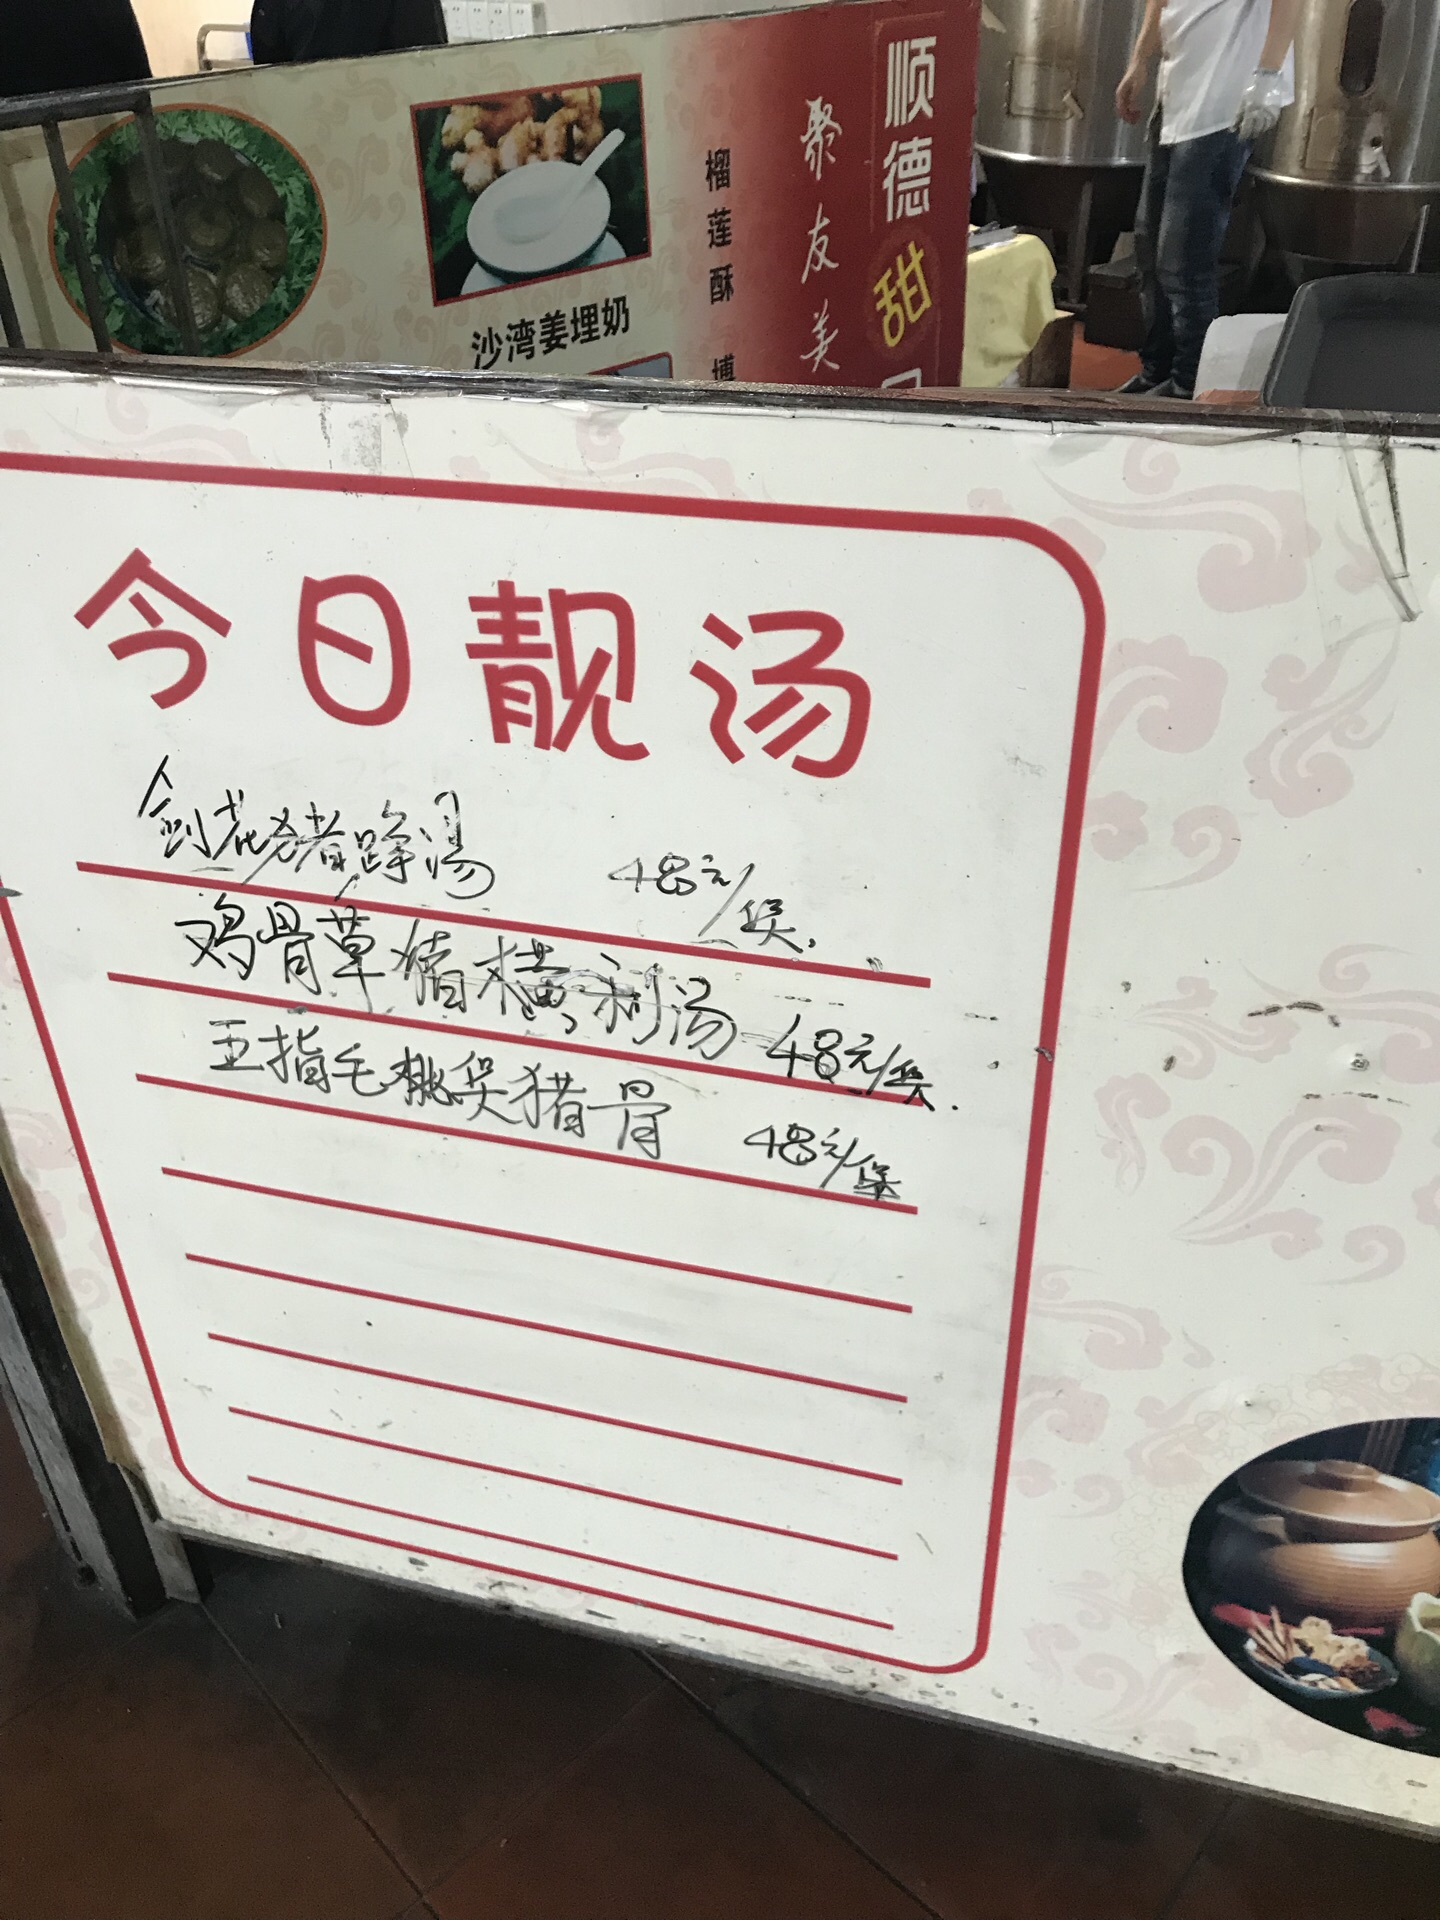 顺德甜
聚友美
榴莲酥 博
沙湾姜埋奶
今日靓汤
剑花猪踭汤 48元/煲.
鸡骨草猪横利汤 48元/煲.
五指毛桃煲猪骨 48元/煲